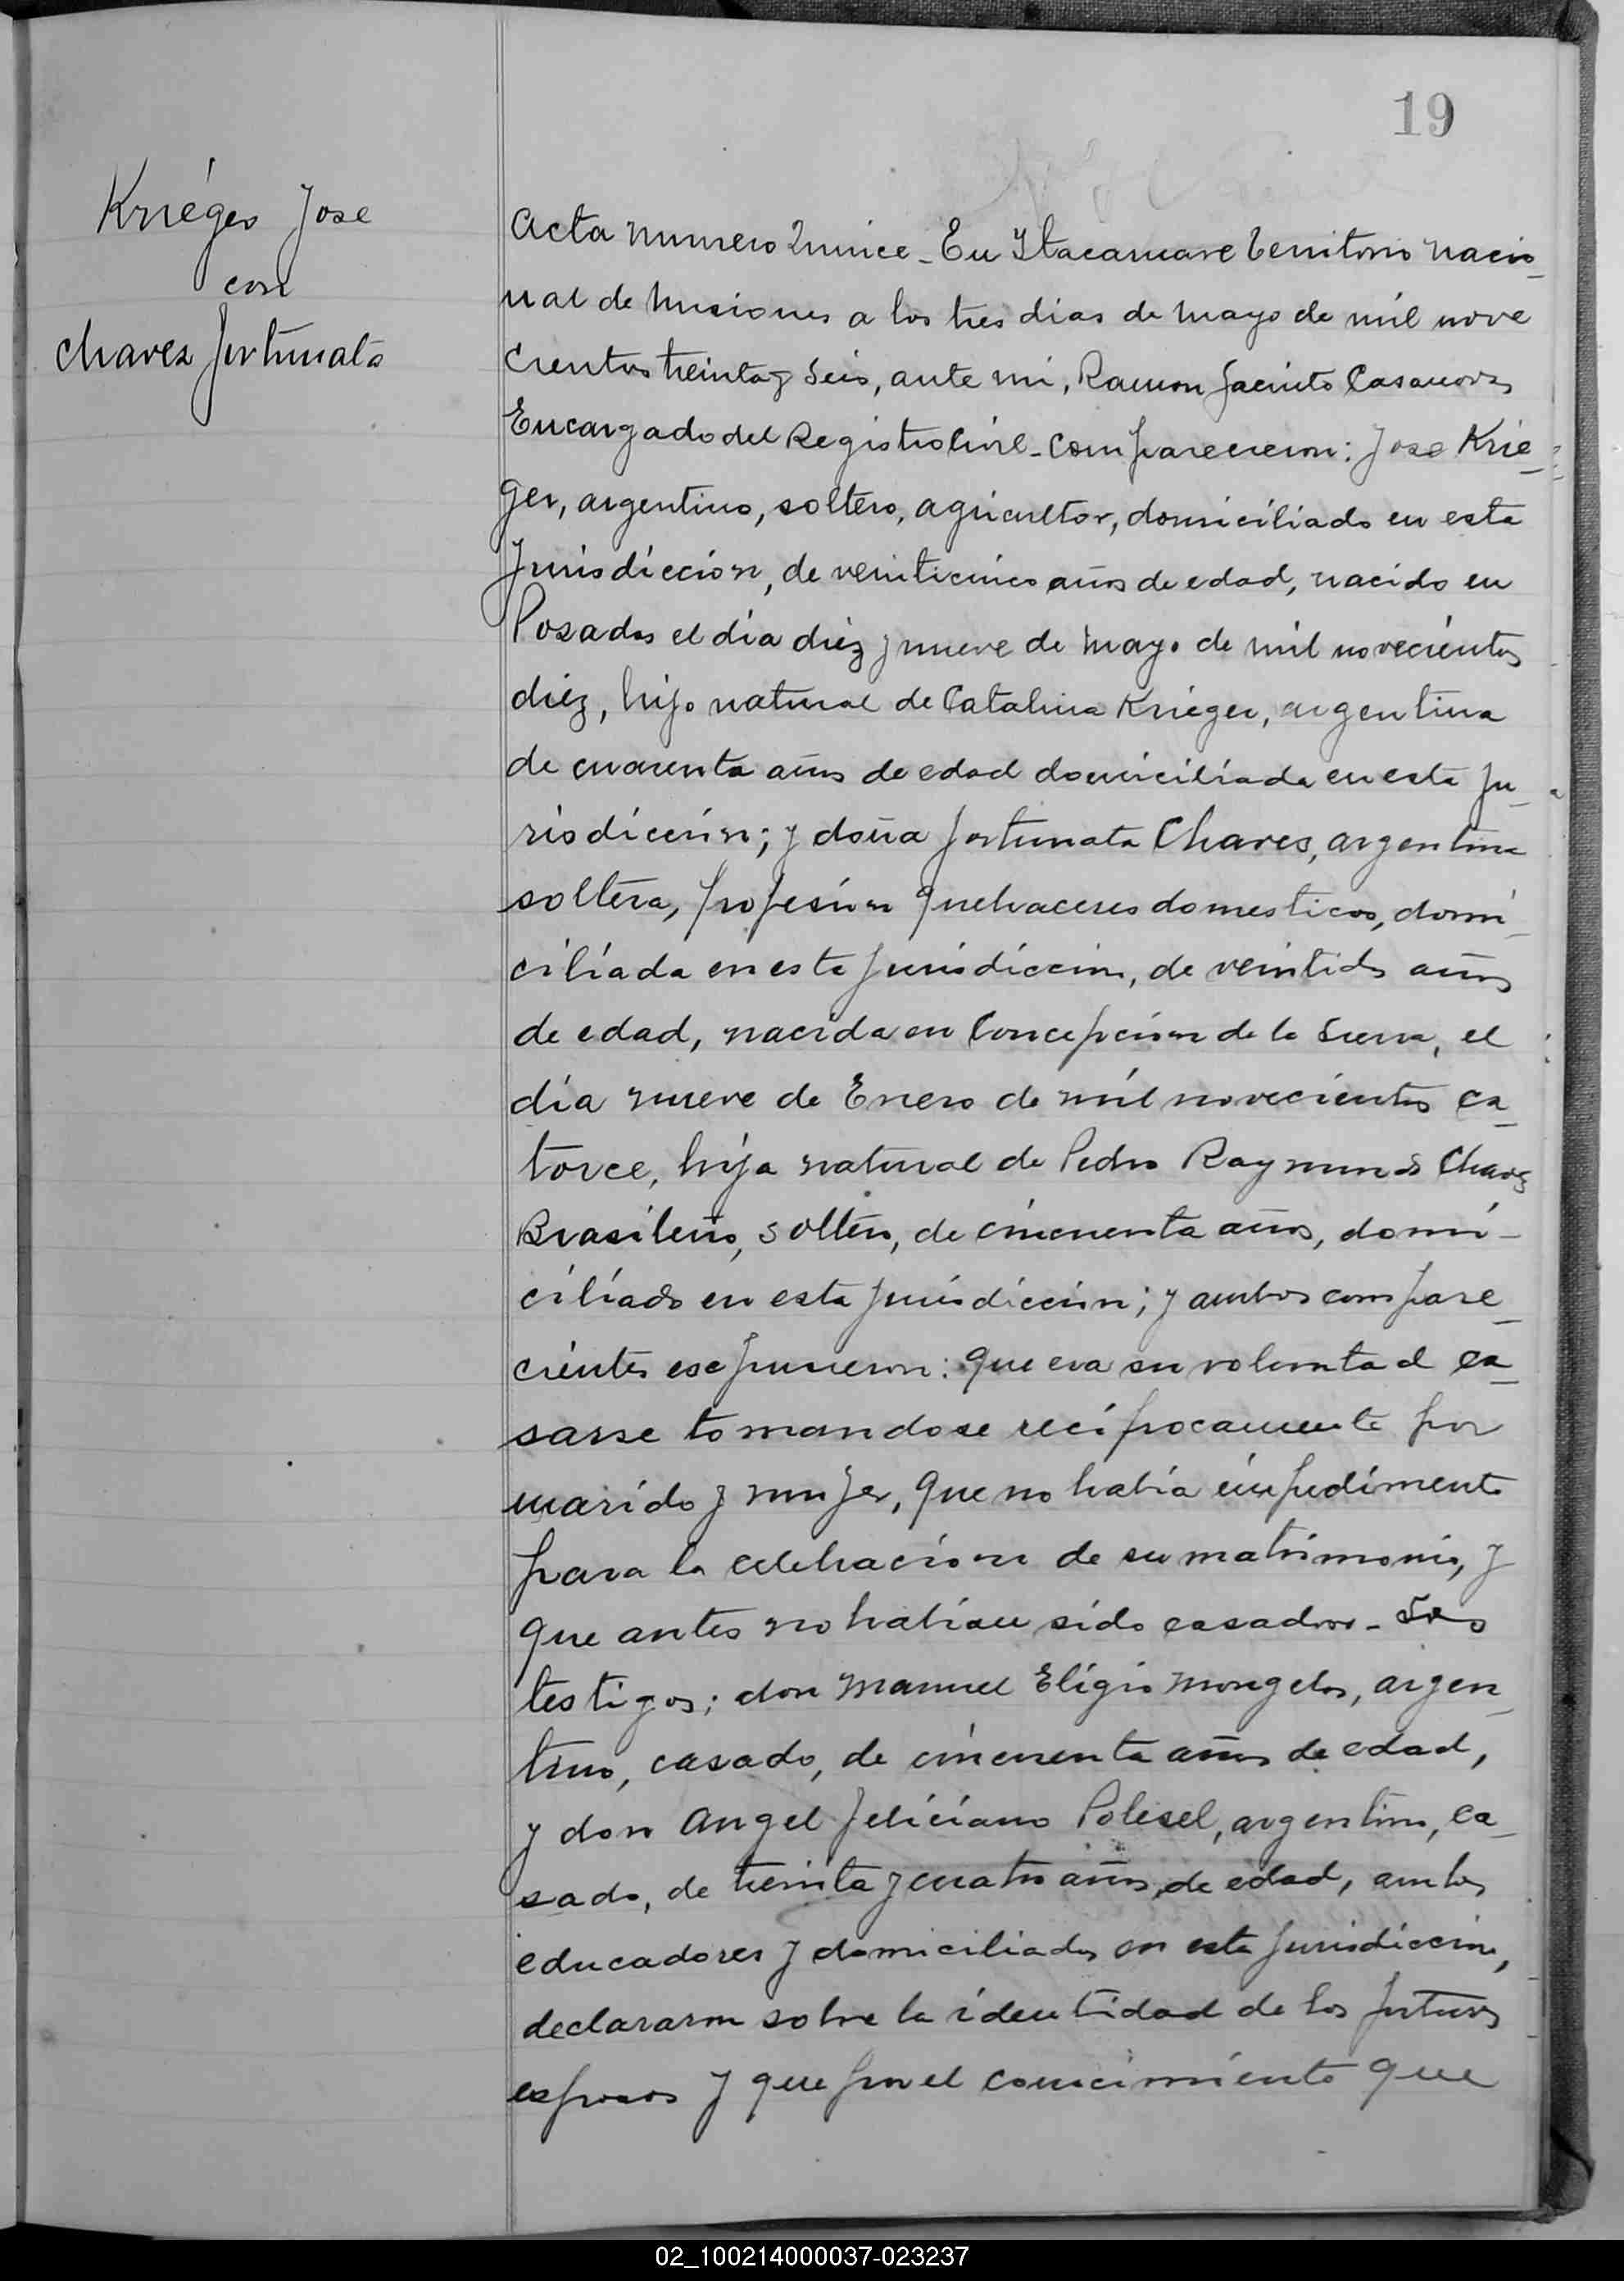 19
Kriéger Jose
con
Chavez fortunata
Acta numero Quince - En Itacaruare territorio nacio
nal de Misiones a los tres dias de Mayo de mil nove
cientos treinta y seis, ante mi, Ramon Jacinto Casanova
Encargado del Registro Civil - comparecieron: Jose Krie
ger, argentino, soltero, agricultor, domiciliado en esta
Jurisdiccion, de veinticinco años de edad, nacido en
Posadas el dia diez y nueve de Mayo de mil novecientos
diez, hijo natural de Catalina Krieger, argentina
de cuarenta años de edad domiciliada en esta Ju
risdiccion; y doña fortunata Chaves, argentina
soltera, profesion quehaceres domesticos, domi
ciliada en esta jurisdiccion, de veintidos años
de edad, nacida en Concepcion de la Sierra, el
dia nueve de Enero de mil novecientos ca
torce, hija natural de Pedro Raymundo Chavez
Brasileño, soltero, de cincuenta años, domi-
ciliado en esta jurisdiccion; y ambos compare
cientes expusieron: que era su voluntad ca
sarse tomandose reciprocamente por
marido y mujer, que no habia impedimento
para la celebracion de su matrimonio, y
que antes no habian sido casados - Los
testigos; don Manuel Eligio Mongelos, argen
tino, casado, de cincuenta años de edad,
y don Angel feliciano Polesel, argentino, ca
sado, de treinta y cuatro años, de edad, ambos
educadores y domiciliados en esta jurisdiccion,
declararon sobre la identidad de los futuros
esposos y que por el conocimiento que
02_100214000037-023237